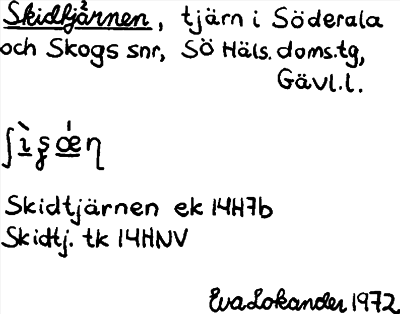 Skidtjärnen, tjärn i Söderala
och Skogs snr, SÖ Häls. doms.tg,
Gävl.l.
Skidtjärnen ek 14H7b
Skidtj. tk 14HNV
Eva Lokander 1972